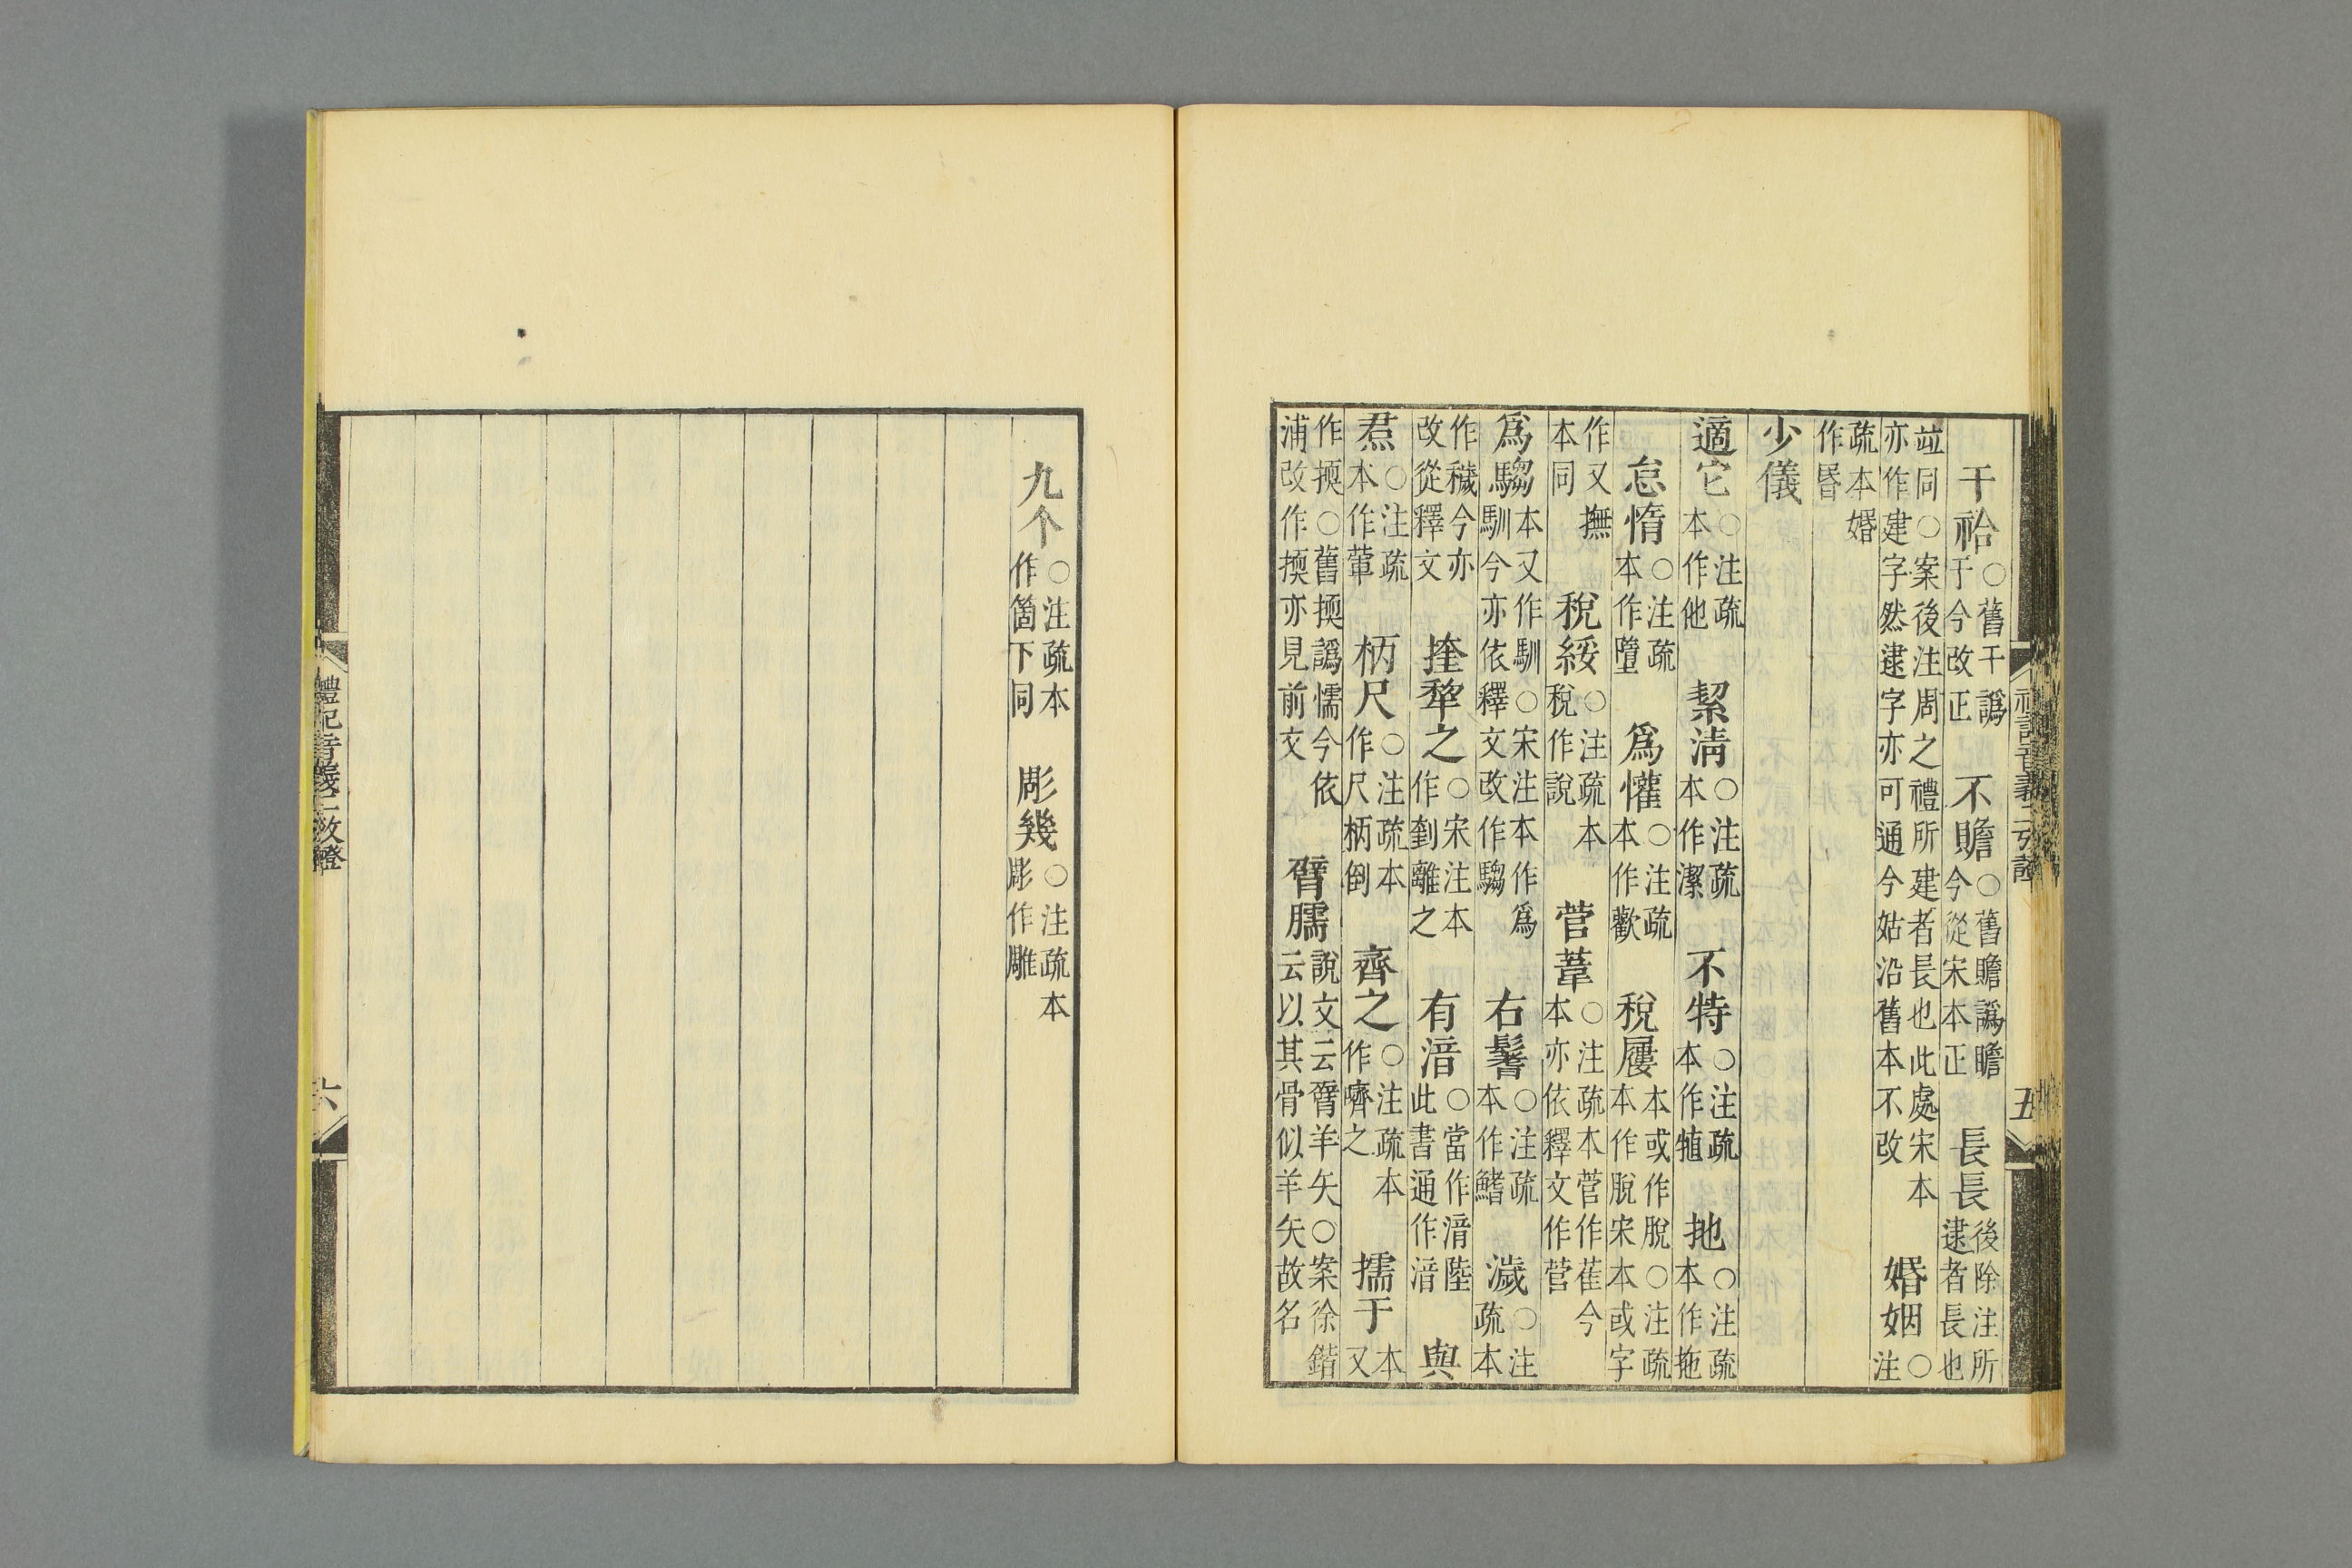 干祫○舊干譌于今改正　不贍○舊贍譌瞻今從宋本正　長長後除注所逮者長也
竝同○案後注周之禮所建者長也此處宋本亦作建字然逮字亦可通今姑沿舊本不改　婚姻○注
疏本婚作昬
少儀
適它○注疏本作他　絜淸○注疏本作潔　不特○注疏本作犆　扡○注疏本作拖
怠惰○注疏本作墮　爲懽○注疏本作歡　稅屨本或作脫○注疏本作脫宋本或字
作又撫本同　稅綏○注疏本稅作說　菅葦○注疏本菅作萑今本亦依釋文作菅
爲騶本又作馴○宋注本作爲馴今亦依釋文改作騶　右鬐○注疏本作鰭　濊○注疏本
作穢今亦改從釋文　㨒犂之○宋注本作㓻離之　有湆○當作湇陸此書通作湆　與
焄○注疏本作葷　柄尺○注疏本作尺柄倒　齊之○注疏本作嚌之　擩于本又
作擩○舊㨎譌懦今依浦改作㨎亦見前文　臂臑說文云臂羊矢○案徐鍇云以其骨似羊矢故名
禮記音義二攷證
五
九个○注疏本作箇下同　彫幾○注疏本彫作雕
禮記音義二攷證
六